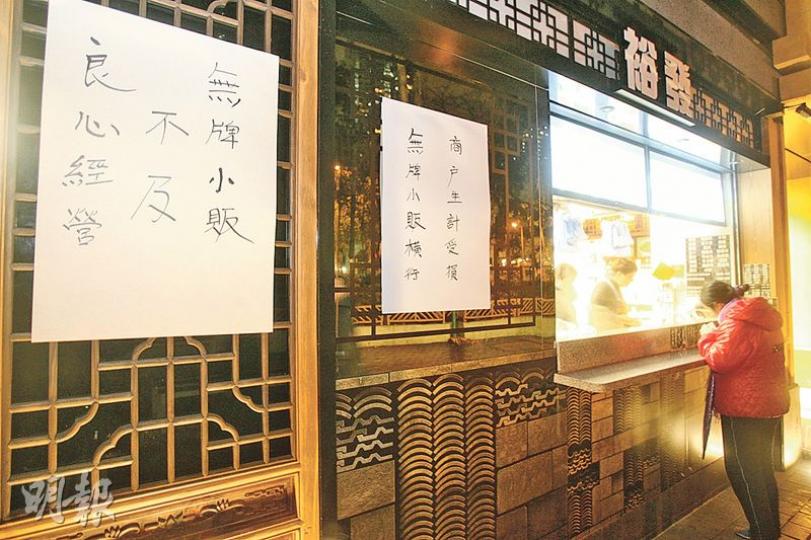 無牌小販
不及
良心經營
商户生計受損
無牌小販橫行
裕發
明報